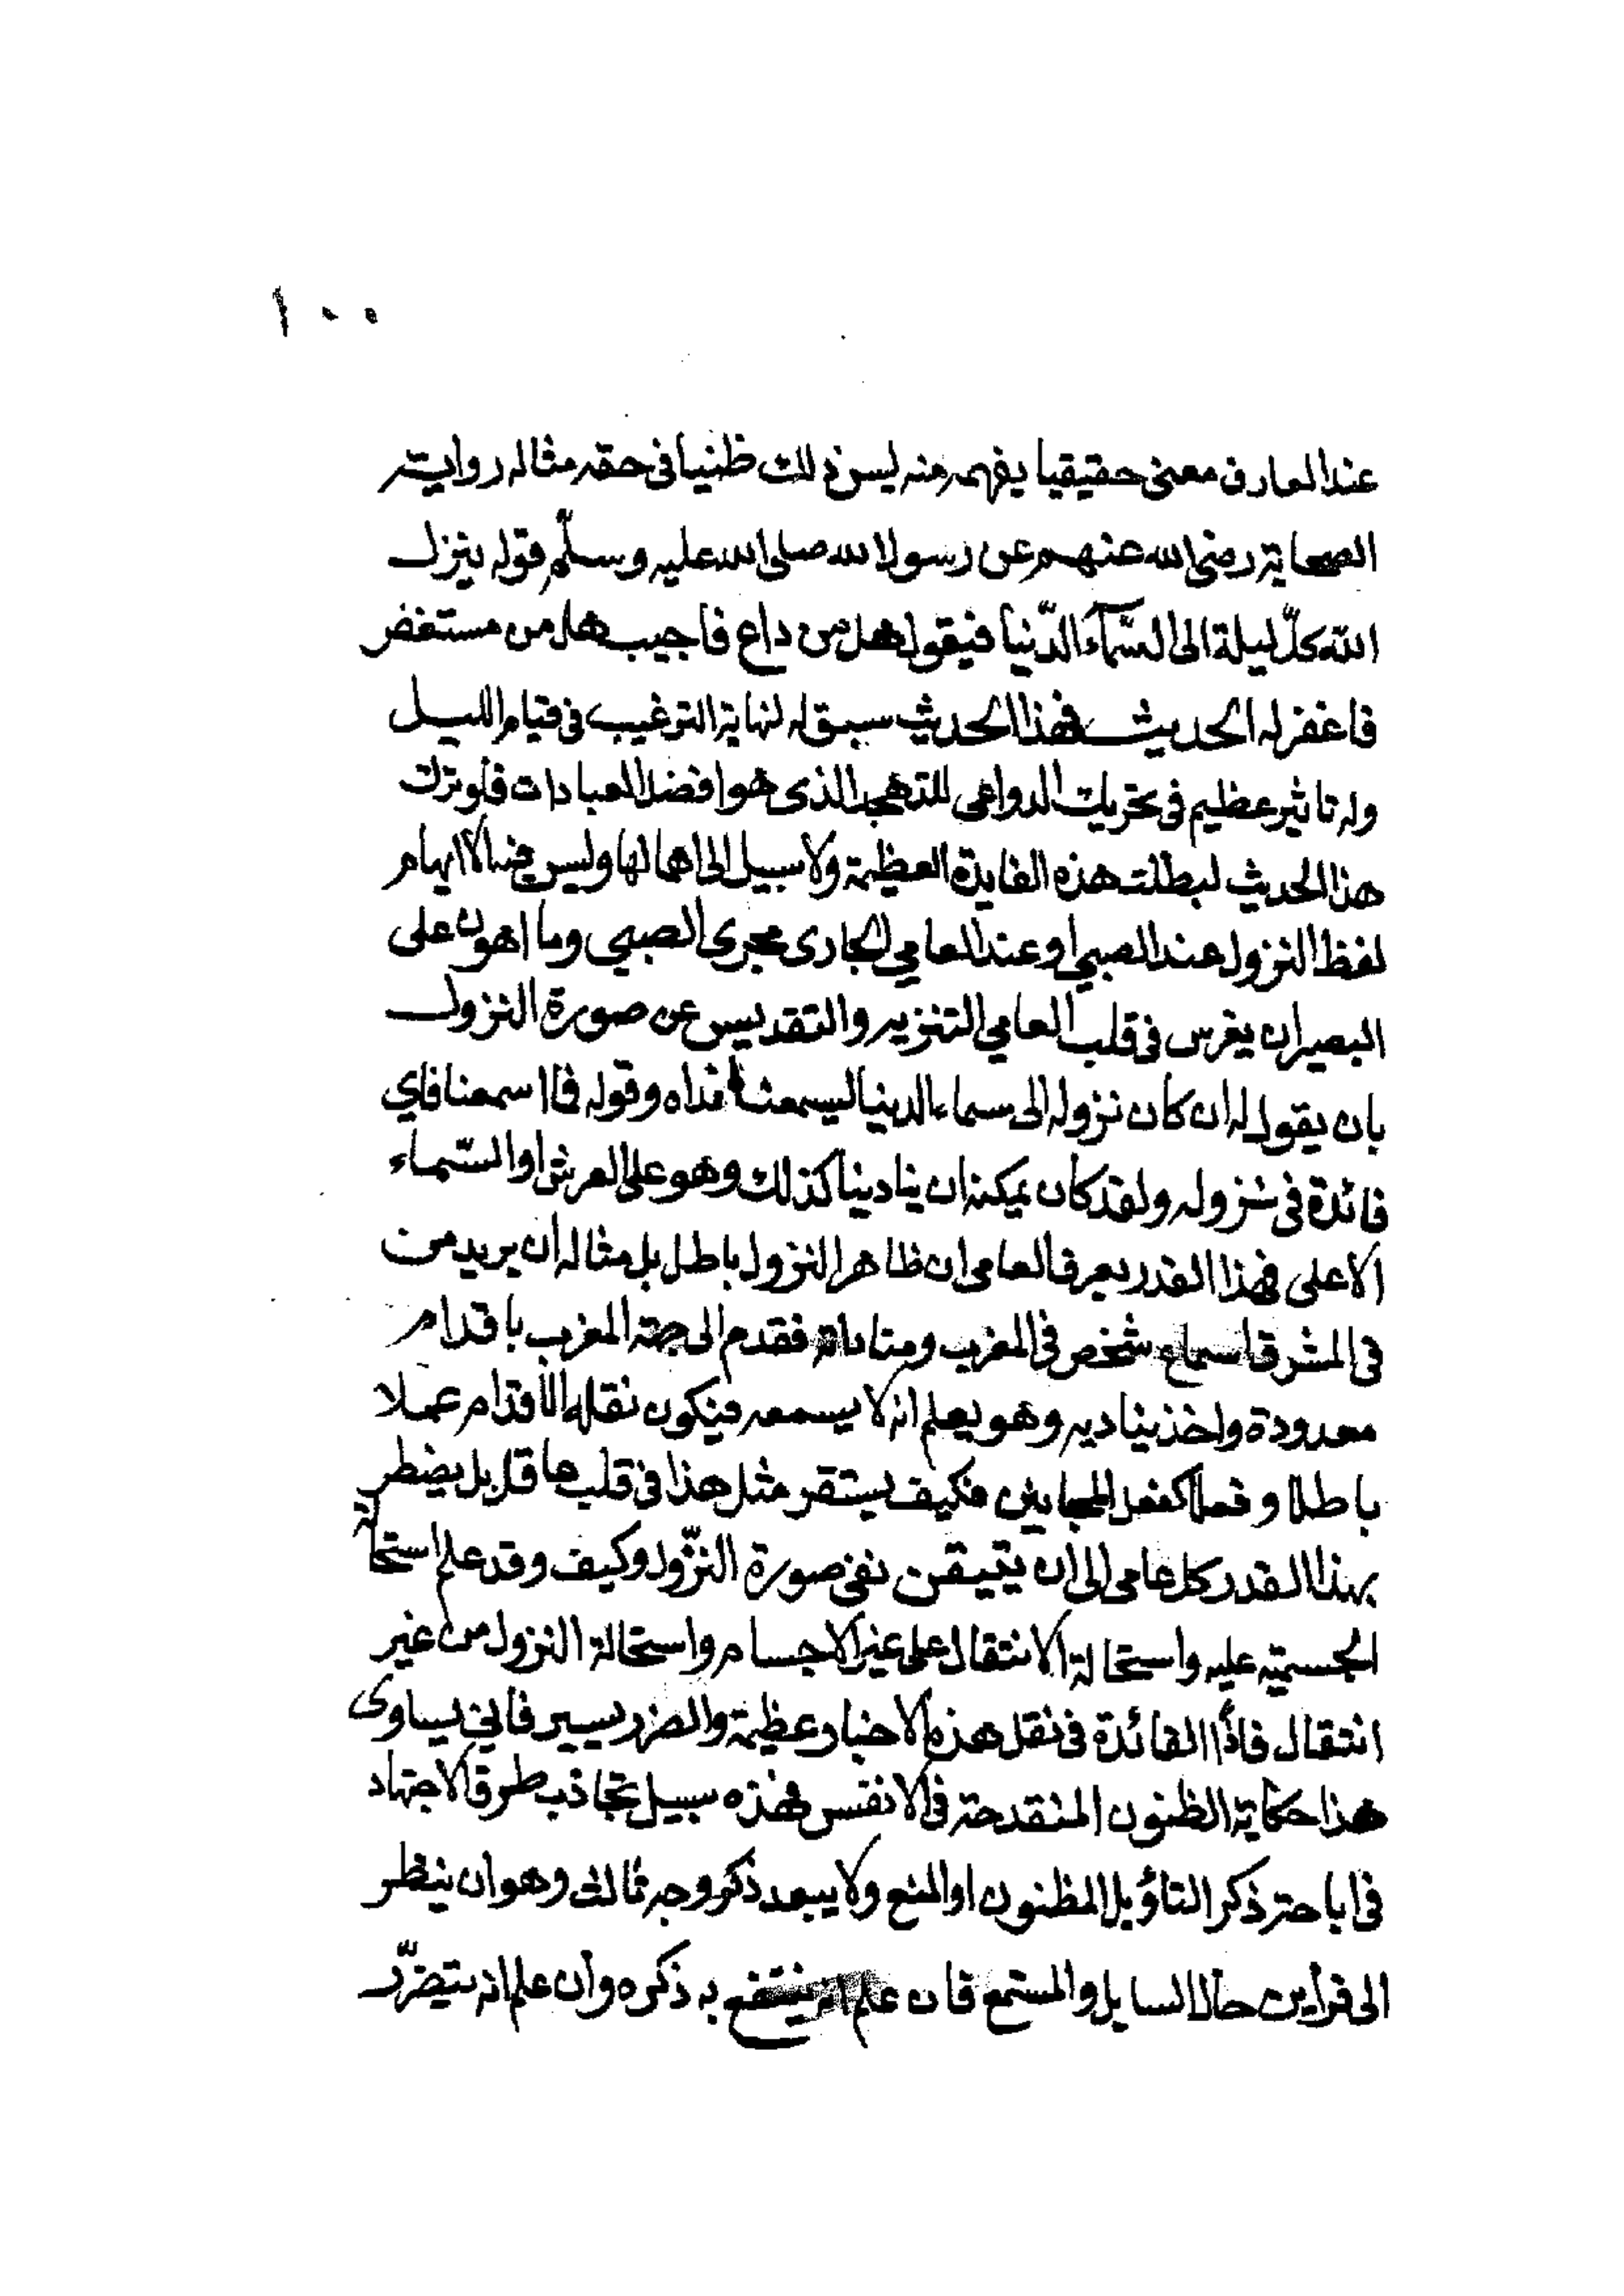 ١٠٠
عند العارف معنى حقيقيا يفهمه منه ليس ذلك ظنيا فى حقه مثاله رواية
الصحابة رضى الله عنهم عن رسول الله صلى الله عليه وسلّم قوله ينزل
الله كلّ ليلة الى السّمآء الدّنيا فيقول هل من داع فاجيب هل من مستغفر
فاغفر له الحديث فهذا الحديث سبق له لنهاية الترغيب فى قيام الليل
وله تاثير عظيم فى تحريك الدواعى للتهجد الذى هو افضل العبادات فلو ترك
هذا الحديث لبطلت هذه الفايدة العظيمة ولا سبيل الى اهمالها وليس فيه الا ايهام
لفظ النزول عند الصبي او عند العامي الجارى مجرى الصبي وما اهون على
البصير ان يغرس فى قلب العامي التنزيه والتقديس عن صورة النزول
بان يقول له ان كان نزوله الى سماء الدنيا ليسمعنا نداه وقوله فما اسمعنا فاي
فائدة فى نزوله ولقد كان يمكنه ان ينادينا كذلك وهو على العرش او السّماء
الاعلى فهذا القدر يعرف العامى ان ظاهر النزول باطل بل مثاله ان يريد من
فى المشرق اسماع شخص فى المغرب ومناداته فقدم الى جهة المغرب باقدام
معدودة واخذ يناديه وهو يعلم انه لا يسمعه فيكون نقله الأقدام عملا
باطلا وفعلا كفعل المجانين فكيف يستقر مثل هذا فى قلب عاقل بل يضطر
بهذا القدر كل عامى الى ان يتيقن نفى صورة النزّول وكيف وقد علم استحالة
الجسميّه عليه واستحالة الانتقال على غير الاجسام واستحالة النزول من غير
انتقال فاذًا الفائدة فى نقل هذه الاخبار عظيمة والضرر يسير فانى يساوى
هذا حكاية الظنون المنقدحة فى الانفس فهذه سبيل تجاذب طرق الاجتهاد
فى اباحة ذكر التاؤيل المظنون او المنع ولا يبعد ذكر وجه ثالث وهو ان ينظر
الى قرآين حال السايل والمستمع فان علم انه ينتفع به ذكره وان علم انه يتضرّر